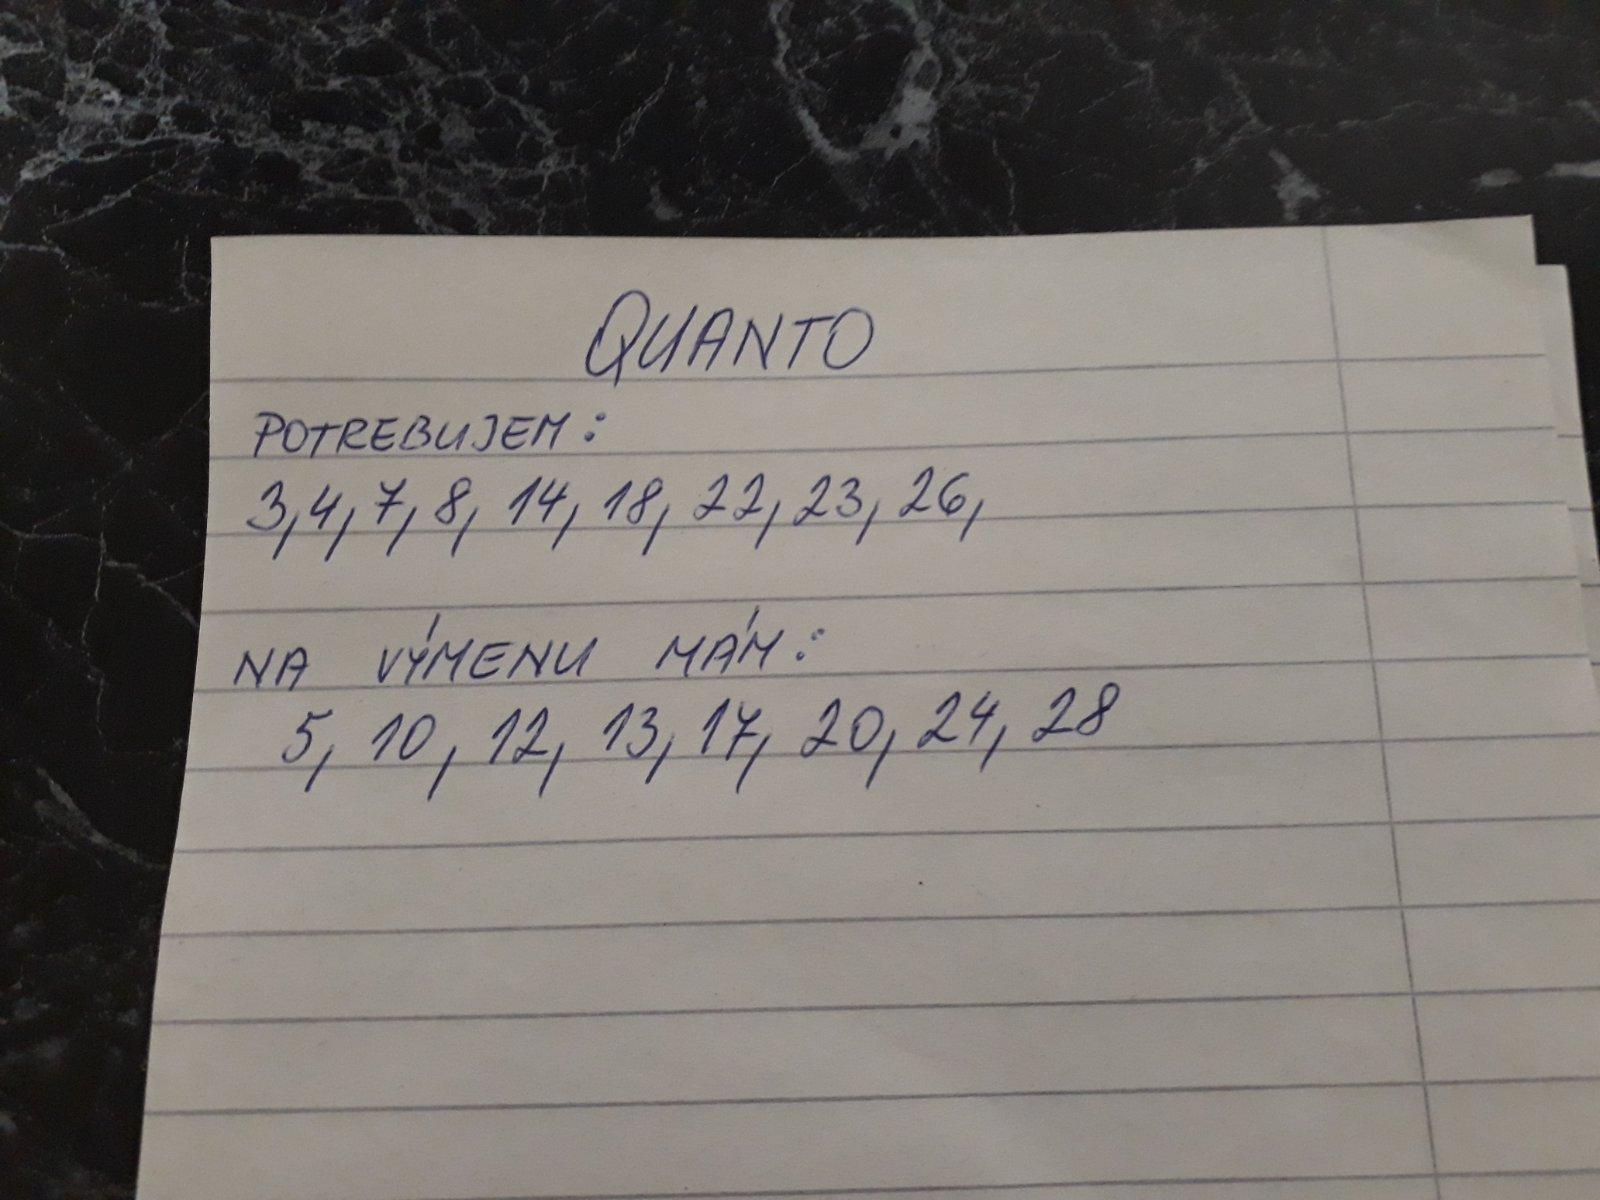 QUANTO
POTREBUJEM:
3,4,7,8, 14, 18, 22, 23, 26,
NA VÝMENU MÁM:
5, 10, 12, 13, 17, 20, 24, 28